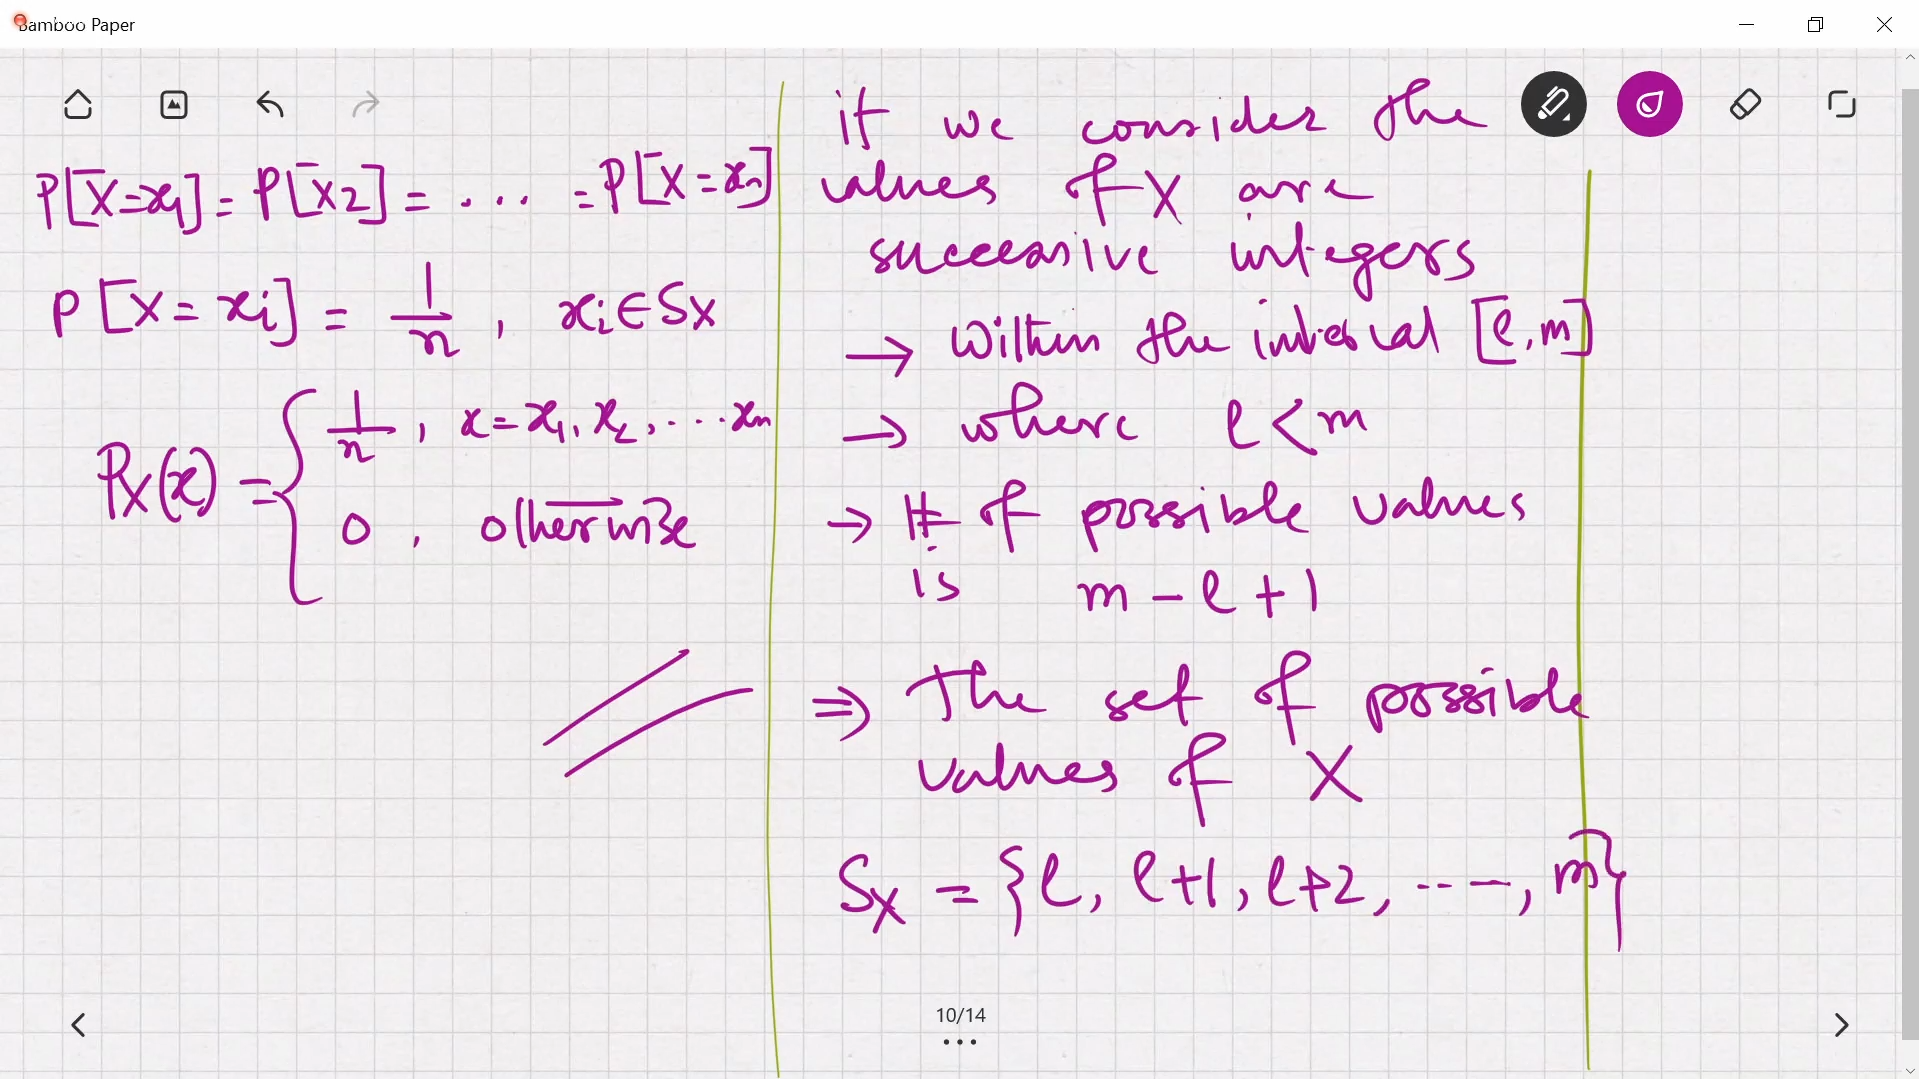 Bamboo Paper
P[X=x1] = P[x2] = ... = P[X=xn]
P[X=xi] = 1/n , xi∈Sx
PX(x) = { 1/n , x=x1, x2, ... xn
0 , otherwise
if we consider the
values of X are
successive integers
→ Within the interval [l,m]
→ where l<m
→ # of possible values
is m-l+1
⇒ The set of possible
values of X
Sx = {l, l+1, l+2, ..., m}
10/14